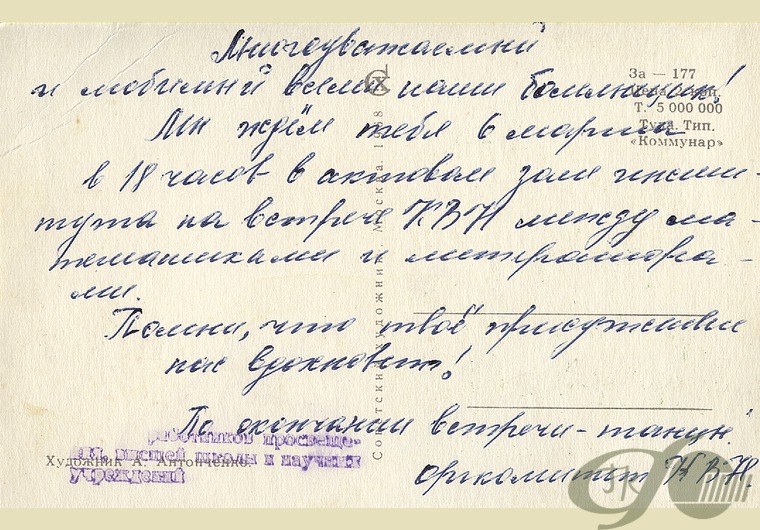 Многоуважаемый
и любимый всеми нами болельщик!
Мы ждём тебя 6 марта
в 18 часов в актовом зале инсти-
тута на встрече КВН между ма-
тематиками и
ми.
Помни, что твоё присутствие
нас вдохновит!
По окончании встречи - танцы!
оргкомитет КВН.
За — 177
Т. 5 000 000
Тула. Тип.
«Коммунар»
Советский художник Москва
работников просвеще-
ния, высшей школы и научных
учреждений
Художник А. Антонченко.